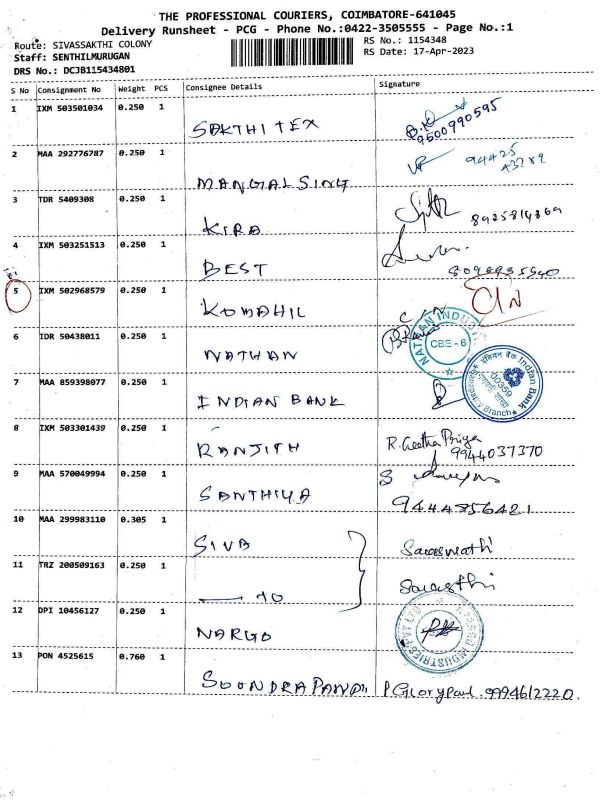 THE PROFESSIONAL COURIERS, COIMBATORE-641045
Delivery Runsheet - PCG - Phone No.:0422-3505555 - Page No.:1
Route: SIVASSAKTHI COLONY
RS No.: 1154348
Staff: SENTHILMURUGAN
RS Date: 17-Apr-2023
DRS No.: DCJB115434801
S No Consignment No Weight PCS Consignee Details Signature
1 IXM 503501034 0.250 1
SAKTHI TEX
9500990595
2 MAA 292776787 0.250 1
94425
MANGAL SING
3 TDR 5409308 0.250 1
KIRA
8925814869
4 IXM 503251513 0.250 1
BEST
5 IXM 502968579 0.250 1
KOMAHIL
NATHAN INDU
CBE - 6
6 IDR 50438011 0.250 1
NATHAN
7 MAA 859398077 0.250 1
INDIAN BANK
Indian Bank
00359
Branch
8 IXM 503301439 0.250 1
RANJITH
R. Geetha Priya
9944037370
9 MAA 570049994 0.250 1
SANTHIYA
9444856421
10 MAA 299983110 0.305 1
SIVA
Saraswathi
11 TRZ 200509163 0.250 1
12 DPI 10456127 0.250 1
NARGO
INDUSTRIES PVT LTD
13 PON 4525615 0.760 1
SOONDRAPANDI
P. Glory Paul 9994612220